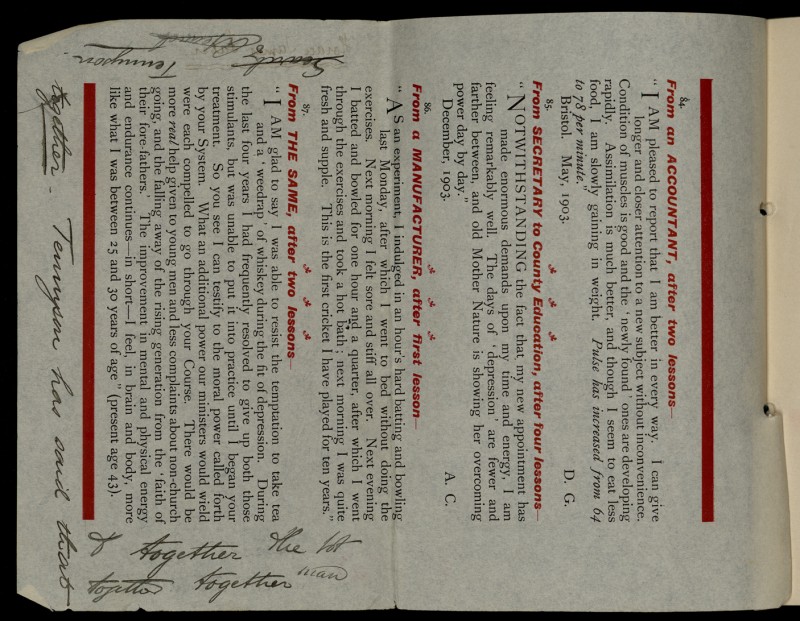 84.
From an ACCOUNTANT, after two lessons—
“I AM pleased to report that I am better in every way. I can give
longer and closer attention to a new subject without inconvenience.
Condition of muscles is good and the ‘newly found’ ones are developing
rapidly. Assimilation is much better, and though I seem to eat less
food, I am slowly gaining in weight. Pulse has increased from 64
to 78 per minute.”
Bristol. May, 1903. D. G.
85.
From SECRETARY to County Education, after four lessons—
“NOTWITHSTANDING the fact that my new appointment has
made enormous demands upon my time and energy, I am
feeling remarkably well. The days of ‘depression’ are fewer and
farther between, and old Mother Nature is showing her overcoming
power day by day.”
December, 1903. A. C.
86.
From a MANUFACTURER, after first lesson—
“AS an experiment, I indulged in an hour's hard batting and bowling
last Monday, after which I went to bed without doing the
exercises. Next morning I felt sore and stiff all over. Next evening
I batted and bowled for one hour and a quarter, after which I went
through the exercises and took a hot bath; next morning I was quite
fresh and supple. This is the first cricket I have played for ten years.”
87.
From THE SAME, after two lessons—
“I AM glad to say I was able to resist the temptation to take tea
and a ‘weedrap’ of whiskey during the fit of depression. During
the last four years I had frequently resolved to give up both those
stimulants, but was unable to put it into practice until I began your
treatment. So you see I can testify to the moral power called forth
by your System. What an additional power our ministers would wield
were each compelled to go through your Course. There would be
more real help given to young men and less complaints about non-church
going, and the falling away of the rising generation from the ‘faith of
their fore-fathers.’ The improvement in mental and physical energy
and endurance continues—in short—I feel, in brain and body, more
like what I was between 25 and 30 years of age” (present age 43).
together - Tennyson has said that
& together the lot
together together man
Tennyson.